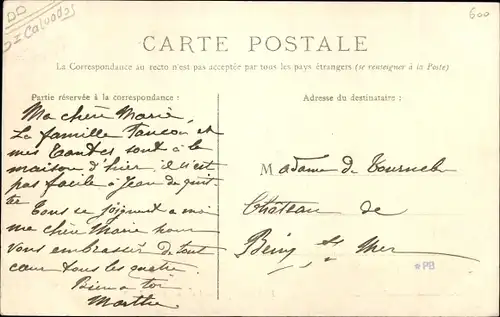 DO
Calvados
600
CARTE POSTALE
La Correspondance au recto n'est pas acceptée par tous les pays étrangers (se renseigner à la Poste)
Partie réservée à la correspondance :
Ma chère Marie,
La famille et
mes tantes sont à la
maison d'hier. il n'est
pas facile à Jean de quit-
ter
Tous se joignent a moi
ma chère Marie pour
vous embrasser de tout
cœur tous les quatre.
Bien a toi
Marthe
Adresse du destinataire :
Madame de
Château de
Bény s/ Mer
*PB